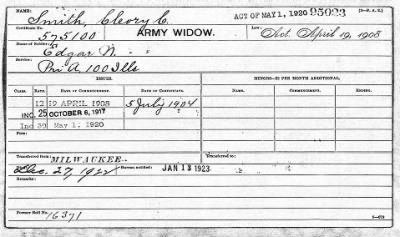 NAME: ACT OF MAY 1, 1920 95023 [3—P. A. T.]
Smith, Cleory C.
Certificate No. 575100 ARMY WIDOW. Act April 19, 1908
Name of Soldier:
Edgar M. " "
Service:
Pri A. 100 Ills
ISSUES. MINORS—$2 PER MONTH ADDITIONAL.
CLASS. RATE. DATE OF COMMENCEMENT. DATE OF CERTIFICATE. NAME. COMMENCEMENT. ENDING.
12 19 APRIL 1908 5 July 1904
INC. 25 OCTOBER 6, 1917
Inc 30 May 1, 1920
Fees:
Transferred from MILWAUKEE Transferred to
Dec. 27, 1922 Bureau notified: JAN 13 1923
Remarks:
Former Roll No 16371